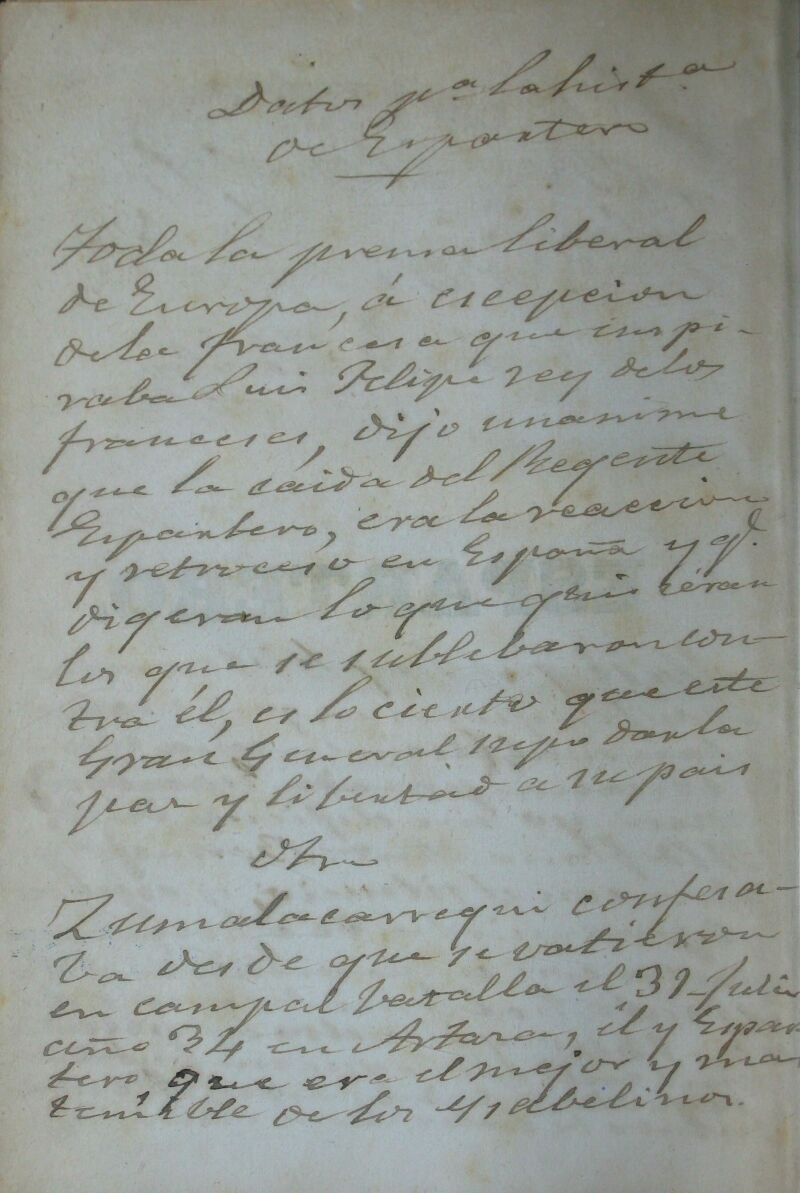 Datos pa la hista
de Espartero
Toda la prensa liberal
de Europa, á escepcion
de la francesa que inspi-
raba Luis Felipe rey de los
franceses, dijo unanime
que la cáida del Regente
Espartero, era la reaccion
y retroceso en España y q.e
digeran lo que quisiéran
los que se sublebaron con-
tra él, es lo cierto que este
Gran General supo dar la
paz y libertad a su pais
Otro
Zumalacarregui confesa-
ba desde que se vatieron
en campal batalla el 31 Julio
año 34 en Artaza, él y Espar
tero, que era el mejor y mas
temible de los Ysabelinos.